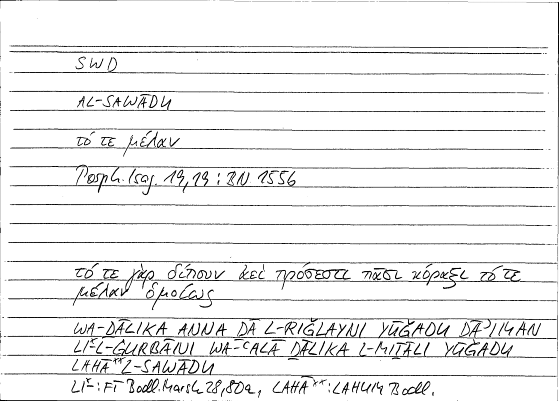 SWD
AL-SAWĀDU
τό τε μέλαν
Porph. Isag. 19,19 : BN 155b
τό τε γὰρ δίπουν ἀεὶ πρόσεστι πᾶσι κόραξι τό τε
μέλαν ὁμοίως
WA-ḎĀLIKA ANNA ḎĀ L-RIǦLAYNI YŪǦADU DĀʾIMAN
LIˣL-ĠURBĀNI WA-ʿALĀ ḎĀLIKA L-MIṮĀLI YŪǦADU
LAHĀˣˣL-SAWĀDU
LIˣ: FĪ Bodl. Marsh 28,80a, LAHĀˣˣ: LAHUM Bodl.